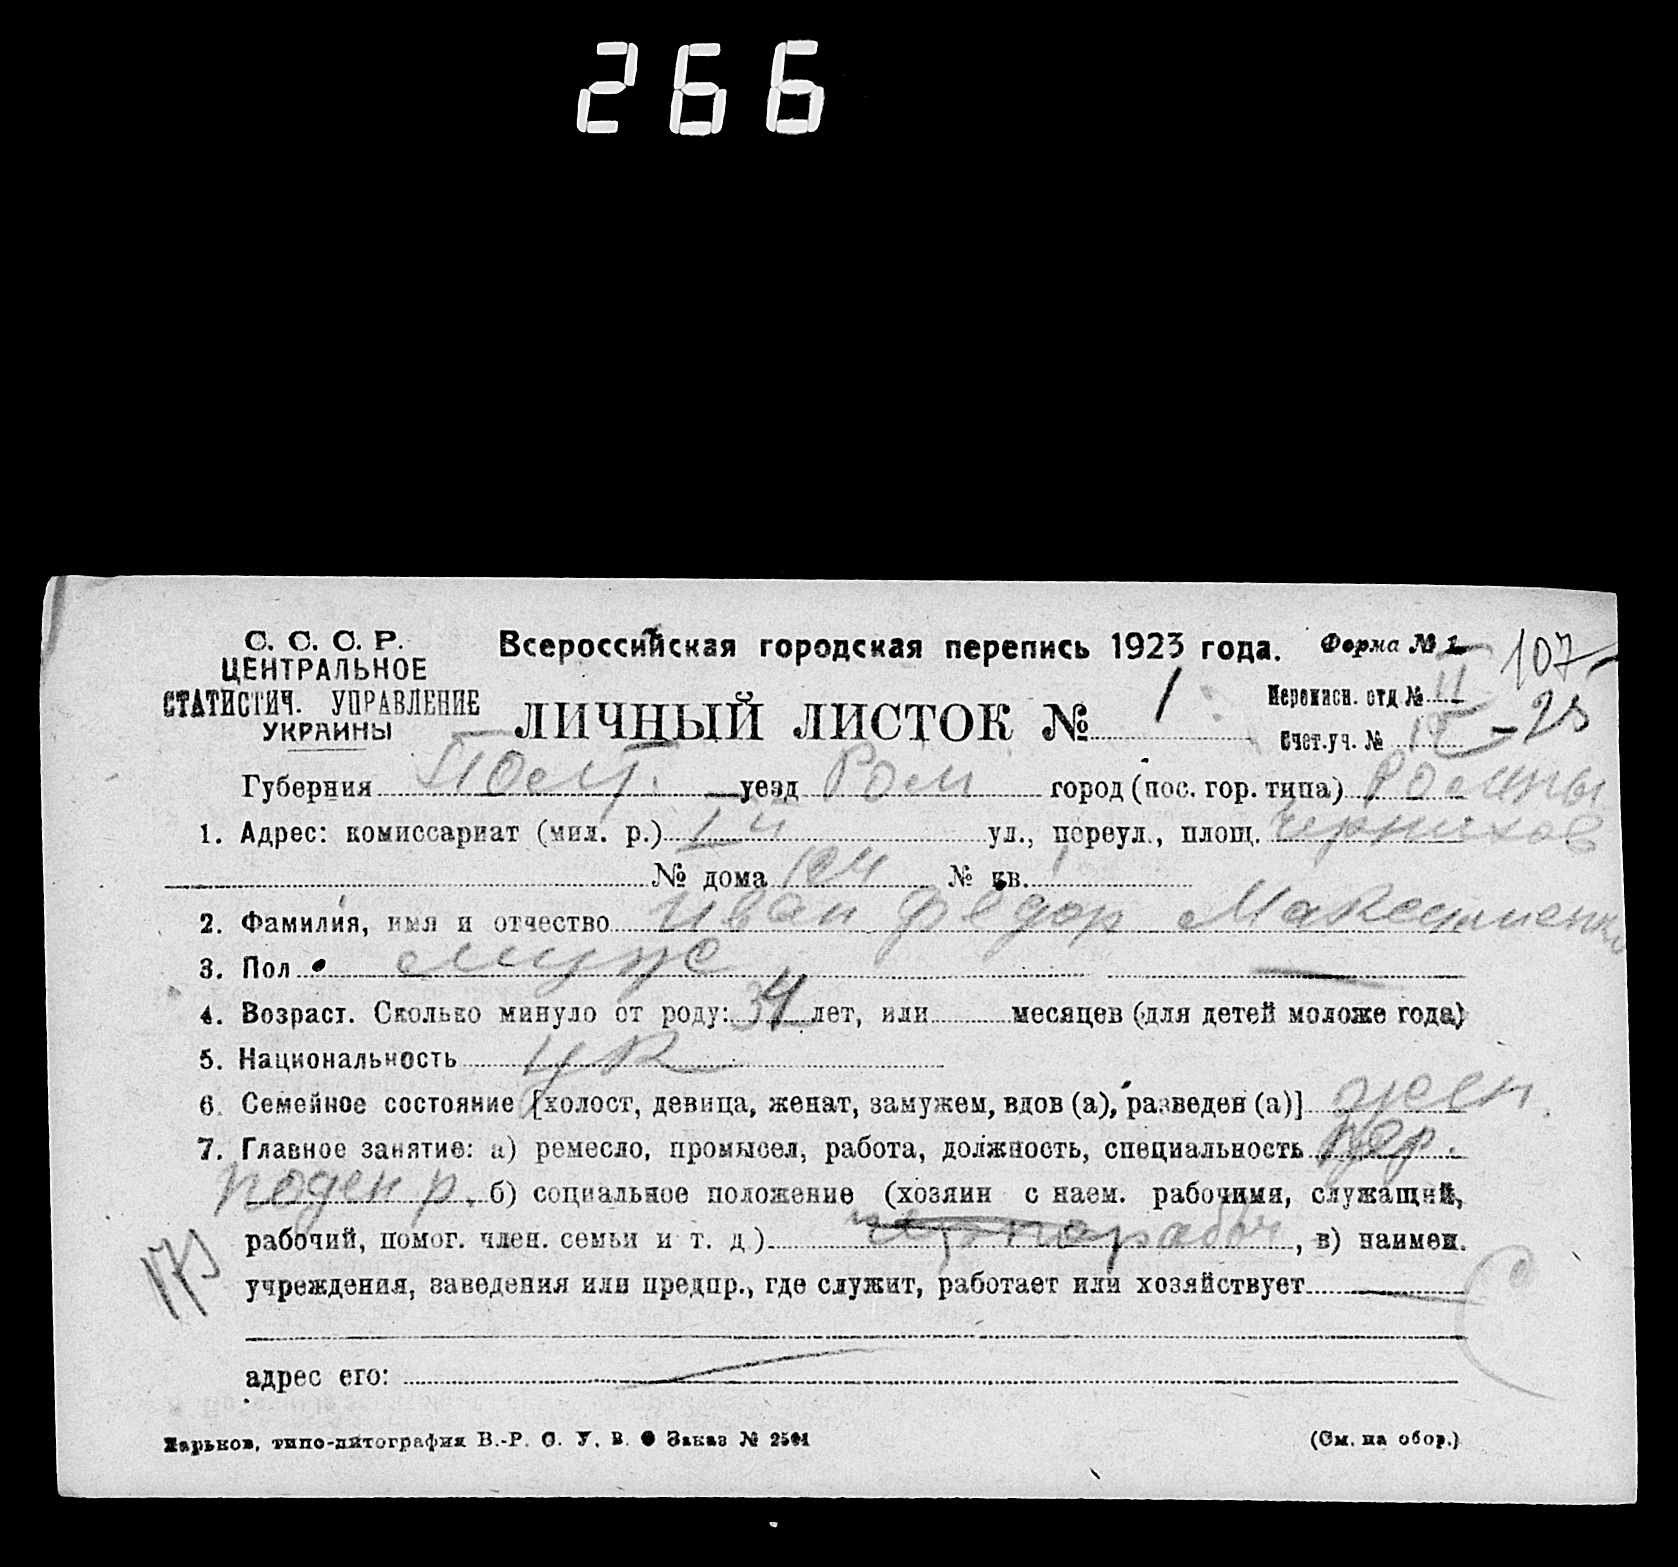 266
С. С. С. Р.
ЦЕНТРАЛЬНОЕ
СТАТИСТИЧ. УПРАВЛЕНИЕ
УКРАИНЫ
Всероссийская городская перепись 1923 года.
Форма № 1
107
ЛИЧНЫЙ ЛИСТОК № 1
Переписн. отд № II
Счет.уч. №
Губерния Полт. уезд Ром город (пос. гор. типа) Ромны
1. Адрес: комиссариат (мил. р.) 1й ул., переул., площ.
№ дома № кв.
2. Фамилия, имя и отчество Иван Федор
3. Пол муж
4. Возраст. Сколько минуло от роду: 34 лет, или месяцев (для детей моложе года)
5. Национальность ук
6. Семейное состояние [холост, девица, женат, замужем, вдов (а), разведен (а)] жен.
7. Главное занятие: а) ремесло, промысел, работа, должность, специальность чер.
поден р. б) социальное положение (хозяин с наем. рабочими, служащий,
рабочий, помог. член. семьи и т. д) чернорабоч, в) наимен.
173
учреждения, заведения или предпр., где служит, работает или хозяйствует
адрес его:
Харьков, типо-литография В.-Р. С. У. В. Заказ №
(См. на обор.)